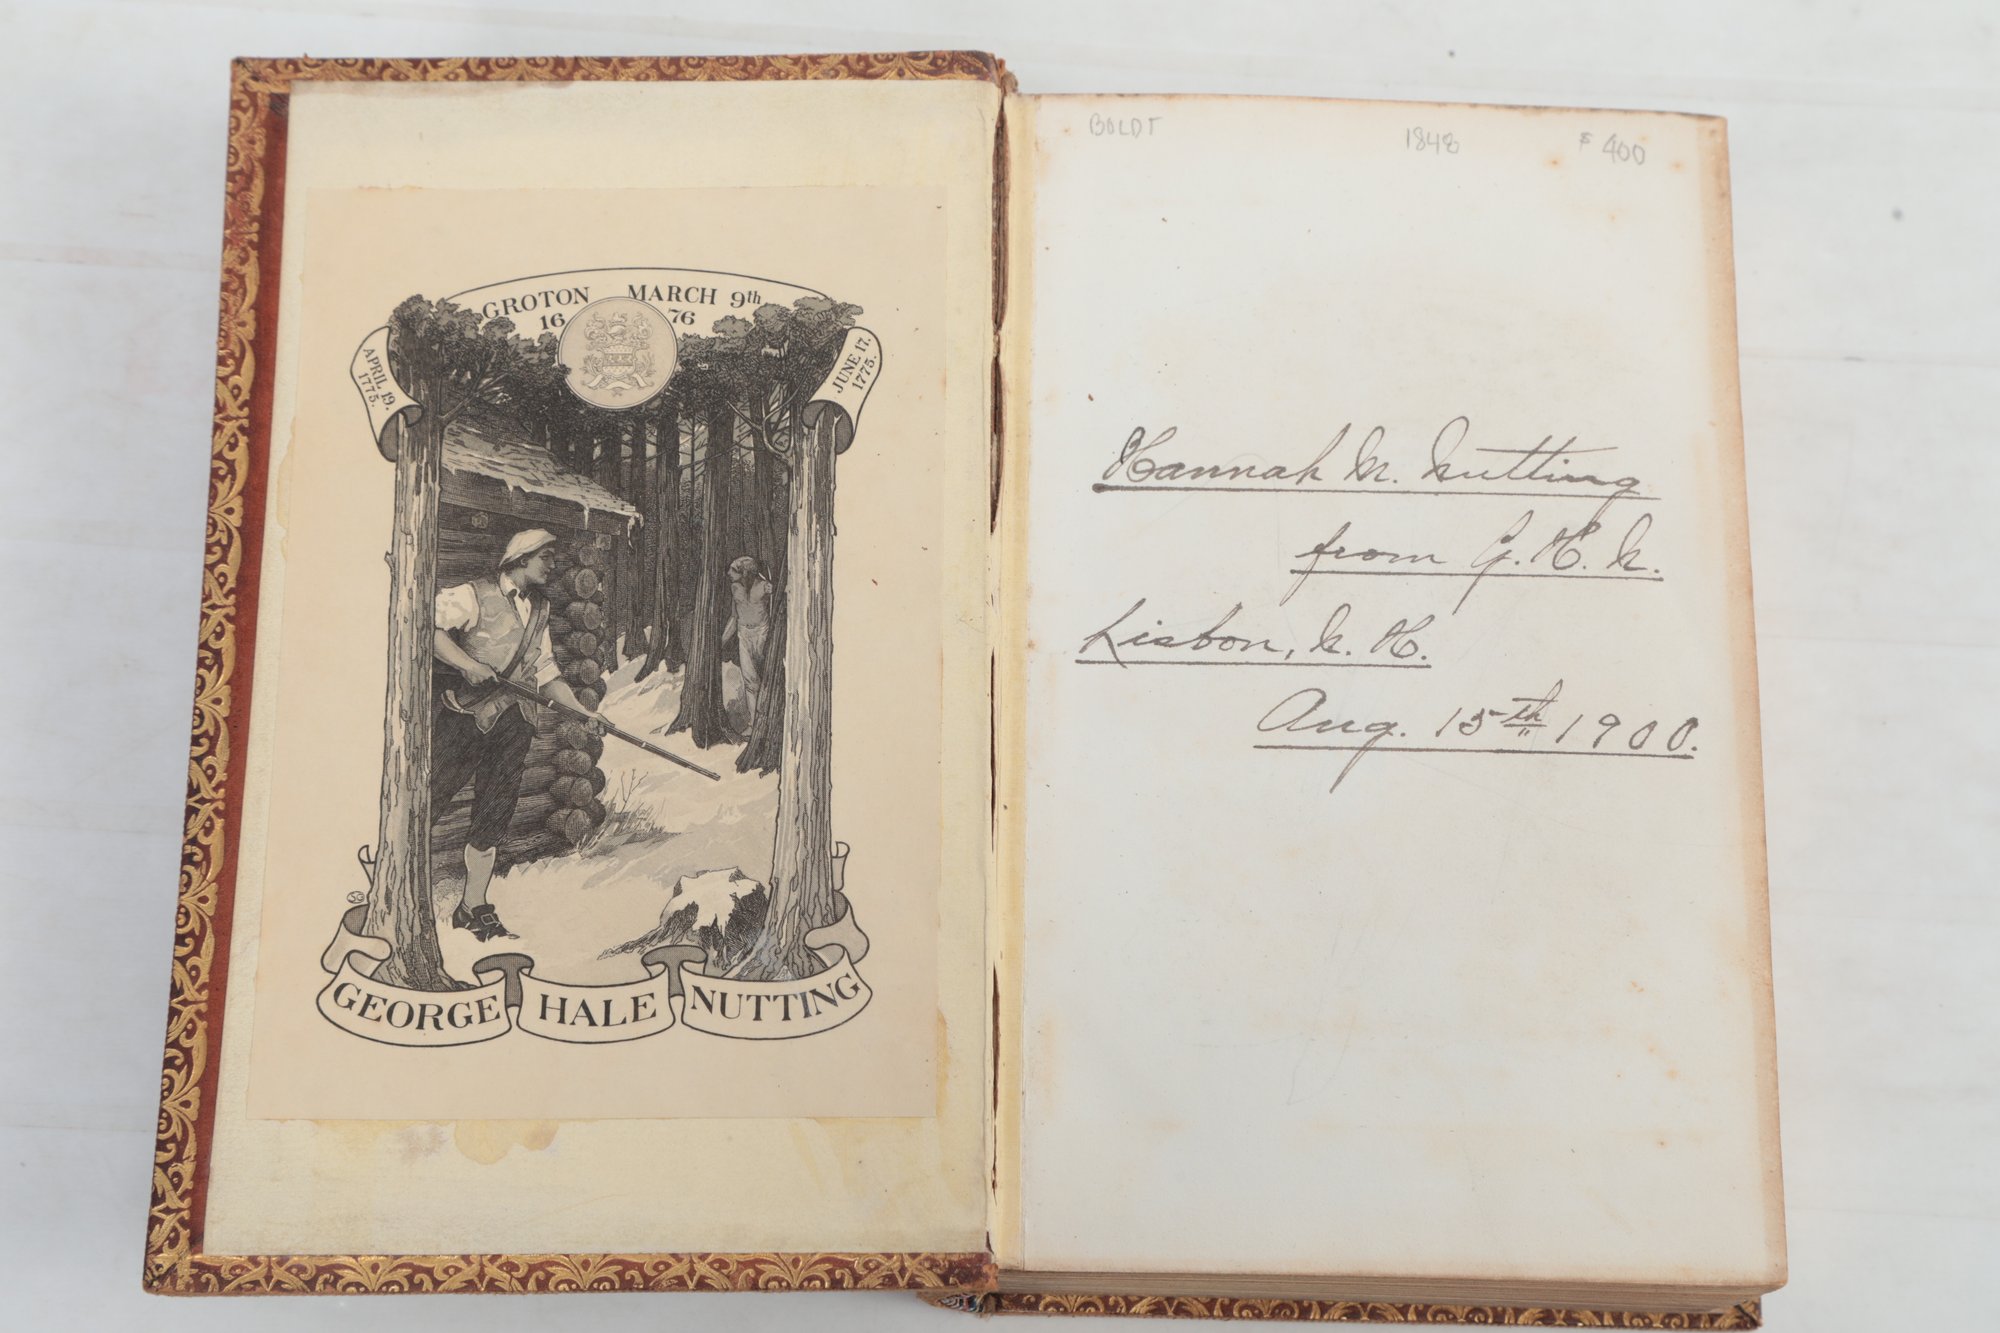 GROTON MARCH 9th
16 76
APRIL 19. 1775.
JUNE 17. 1775.
GEORGE HALE NUTTING
BOLDT 1848 $400
Hannah N. Nutting
from G. H. N.
Lisbon, N. H.
Aug. 15th 1900.